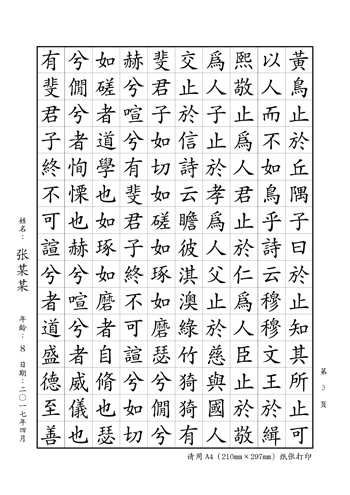 黃鳥止於丘隅子曰於止知其所止可
以人而不如鳥乎詩云穆穆文王於緝
熙敬止爲人君止於仁爲人臣止於敬
爲人子止於孝爲人父止於慈與國人
交止於信詩云瞻彼淇澳綠竹猗猗有
斐君子如切如磋如琢如磨瑟兮僩兮
赫兮喧兮有斐君子終不可諠兮如切
如磋者道學也如琢如磨者自脩也瑟
兮僩兮者恂慄也赫兮喧兮者威儀也
有斐君子終不可諠兮者道盛德至善
姓名：张某某 年龄：8 日期：二〇一七年四月
第3頁
请用A4（210mm×297mm）纸张打印